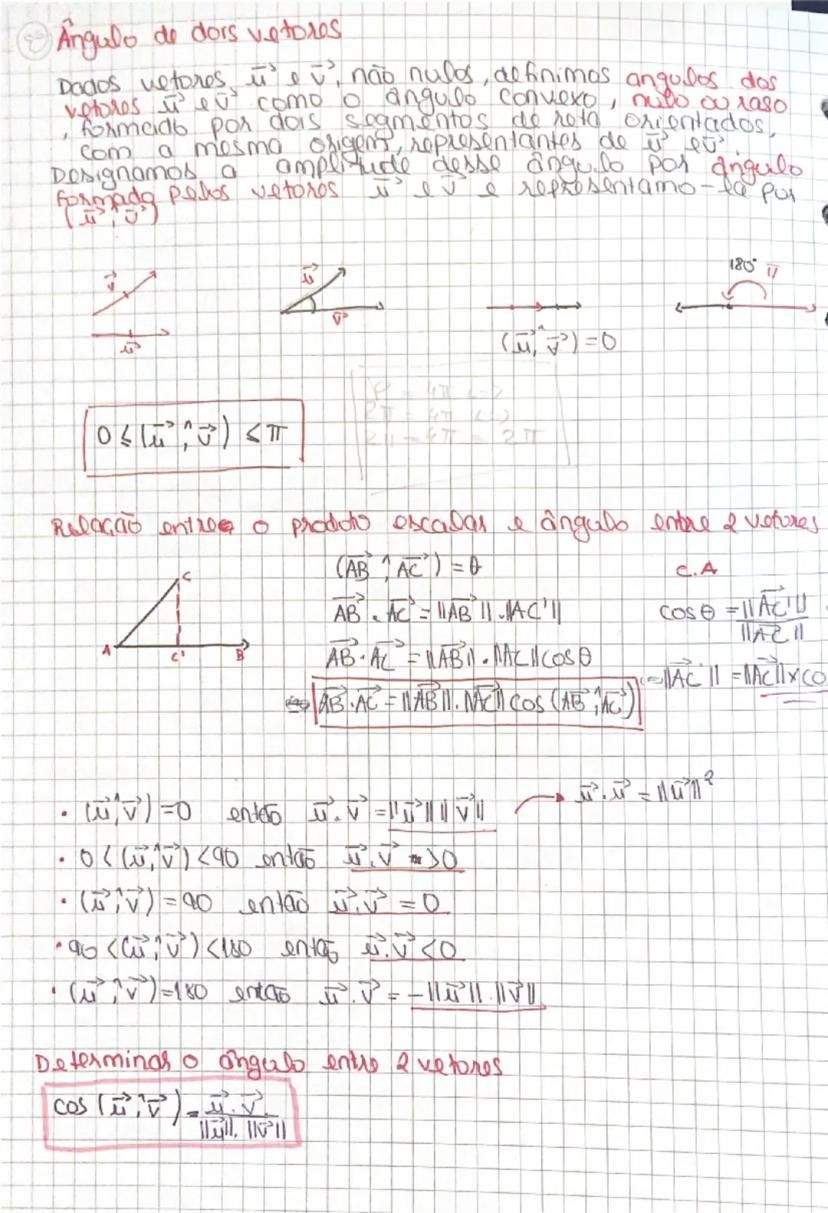 Ângulo de dois vetores
Dados vetores, u⃗ e v⃗, não nulos, definimos angulos dos
vetores u⃗ e v⃗ como o ângulo convexo, nulo ou raso
, formado por dois segmentos de reta orientados,
com a mesma origem, representantes de u⃗ e v⃗
Designamos a amplitude desse ângulo por ângulo
formada pelos vetores u⃗ e v⃗ e representamo-la por
(u⃗,^v⃗)
v⃗
u⃗
u⃗
v⃗
(u⃗,^v⃗) = 0
180° π
0 ≤ (u⃗,^v⃗) ≤ π
2π = 4π
= 2π
Relação entre o produto escalar e ângulo entre 2 vetores
C
A C' B
(AB⃗,^AC⃗) = θ
AB⃗ . AC⃗ = ||AB⃗|| . ||AC'||
AB⃗ . AC⃗ = ||AB⃗|| . ||AC|| cos θ
⇔ AB⃗ . AC⃗ = ||AB⃗|| . ||AC⃗|| cos (AB⃗,^AC⃗)
C.A
cos θ = ||AC⃗'|| / ||AC⃗||
||AC⃗'|| = ||AC⃗|| x co
• (u⃗,^v⃗) = 0 então u⃗ . v⃗ = ||u⃗|| ||v⃗|| → u⃗ . u⃗ = ||u⃗||²
• 0 < (u⃗,^v⃗) < 90 então u⃗ . v⃗ > 0
• (u⃗,^v⃗) = 90 então u⃗ . v⃗ = 0
• 90 < (u⃗,^v⃗) < 180 então u⃗ . v⃗ < 0
• (u⃗,^v⃗) = 180 então u⃗ . v⃗ = -||u⃗|| . ||v⃗||
Determinar o ângulo entre 2 vetores
cos (u⃗,^v⃗) = u⃗ . v⃗ / ||u⃗|| . ||v⃗||